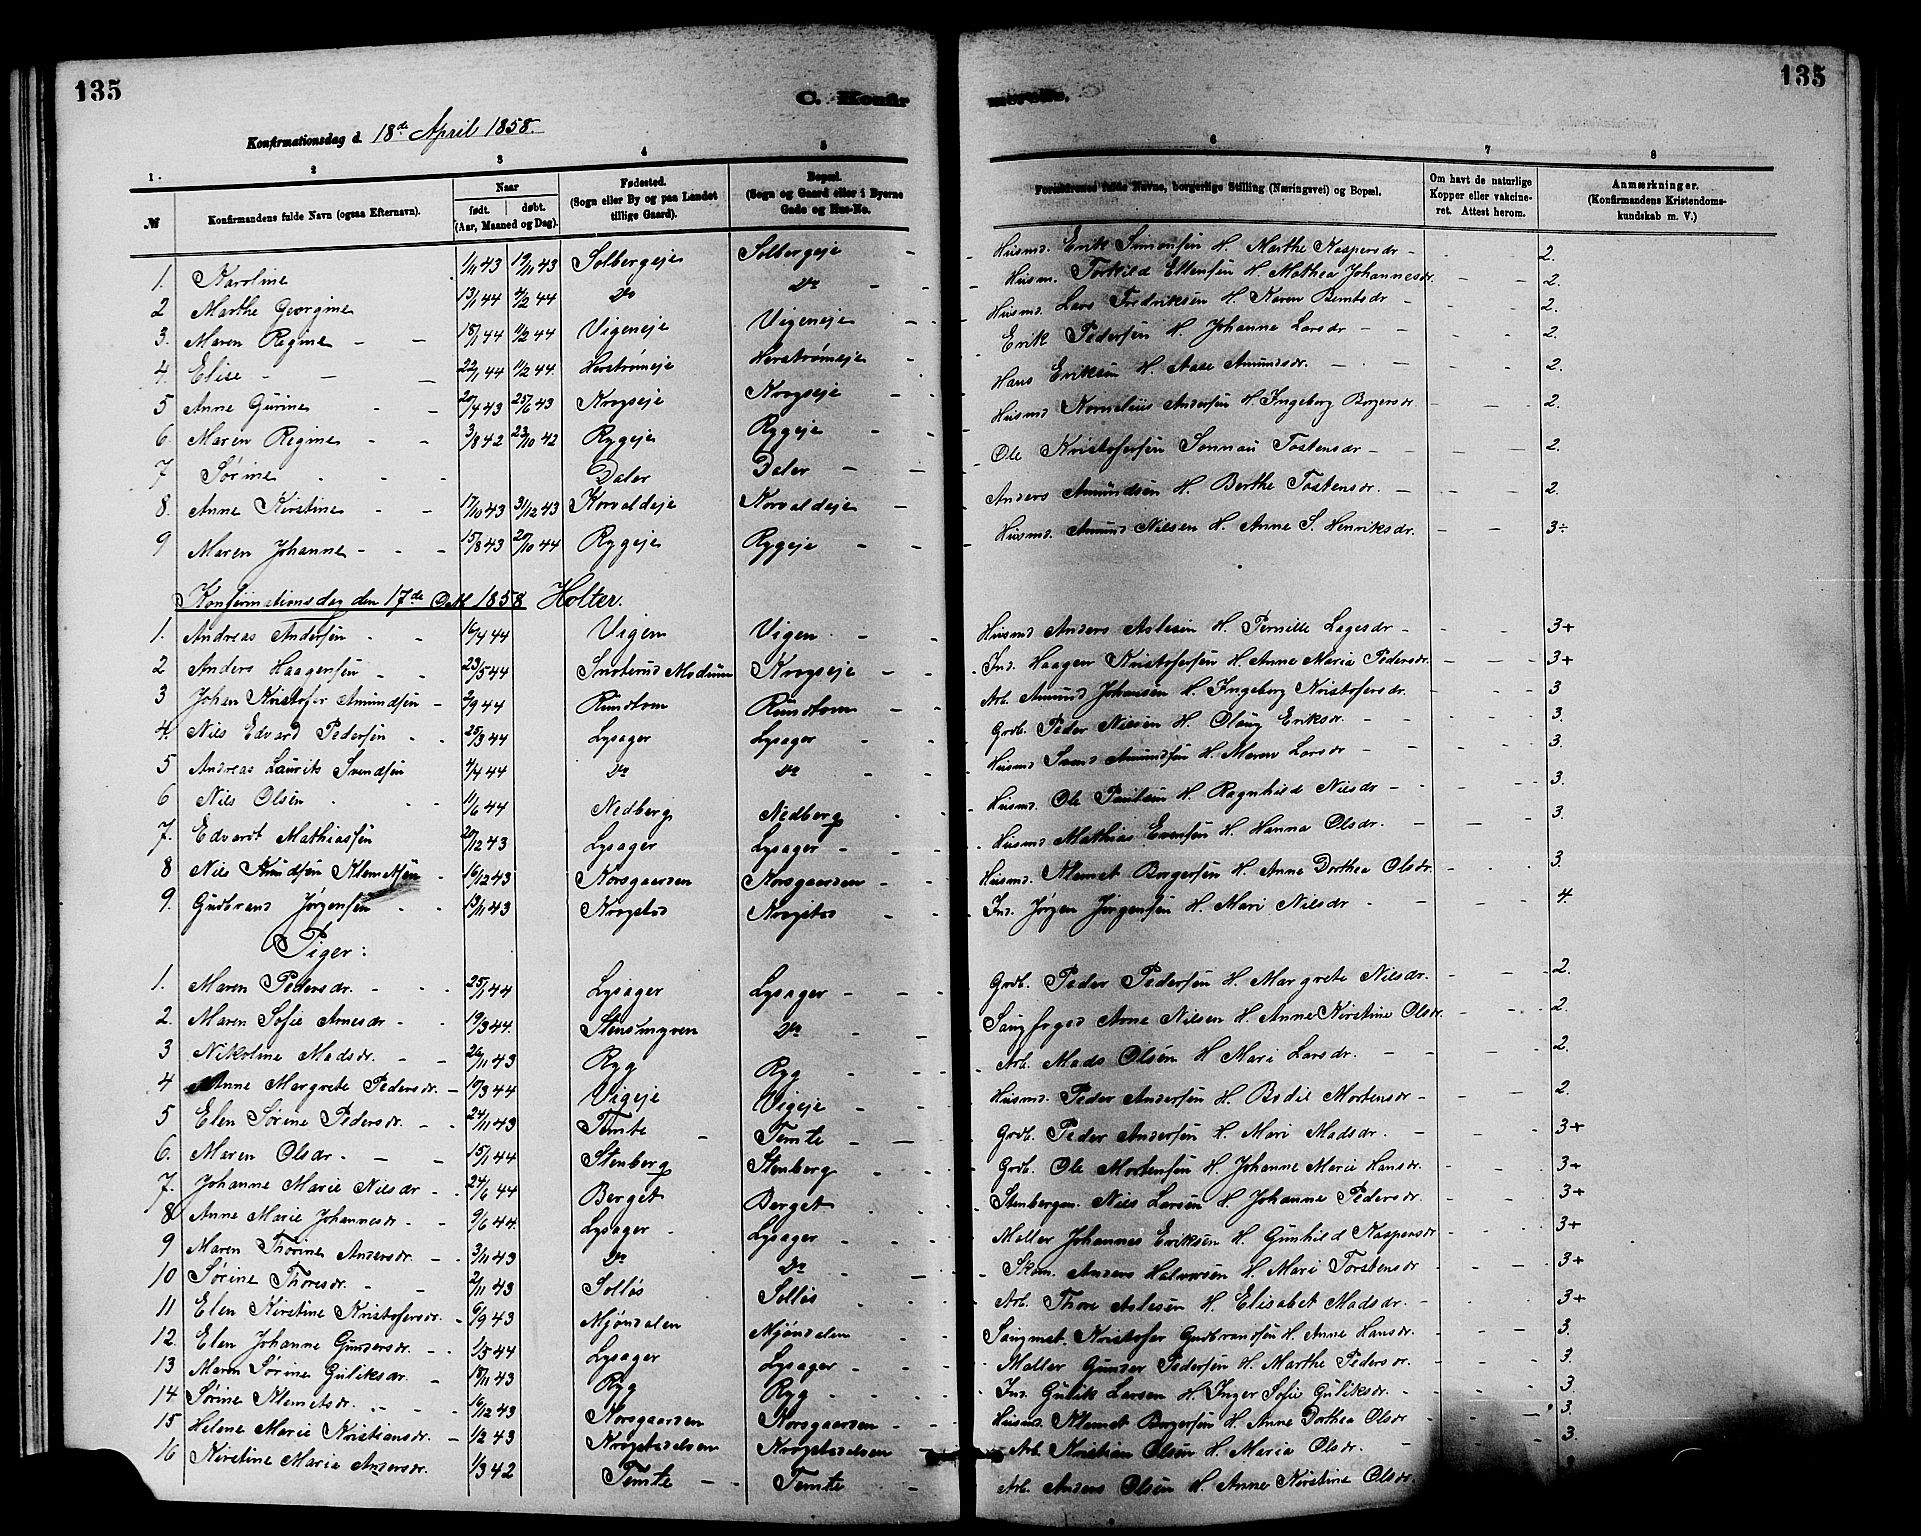 135
C. Konfir
135
Konfirmationsdag d. 18de April 1858.
1. 2 3 4 5 6 7 8
№ Konfirmandens fulde Navn (ogsaa Efternavn). Naar født. døbt. (Aar, Maaned og Dag). Fødested. (Sogn eller By og paa Landet tillige Gaard). Bopæl. (Sogn og Gaard eller i Byerne Gade og Hus-No. Forældrenes fulde Navne, borgerlige Stilling (Næringsvei) og Bopæl. Om havt de naturlige Kopper eller vakcineret. Attest herom. Anmærkninger. (Konfirmandens Kristendomskundskab m. V.)
1. Karoline 1/11 43 19/11 43 Solbergeje Solbergeje - - Husmd. Erik Simensen H. Marthe Kaspersdr - 2.
2 Marthe Georgine 13/1 44 4/2 44 Do Do - - Husm. Torkild Ellensen H. Mathea Johannesdr. - - 2.
3. Maren Regine - - 18/1 44 11/2 44 Vigeneje Vigeneje - - Husmd. Lars Fredriksen H. Karen Berntsdr - - - 2.
4. Elise - - - 22/1 44 11/2 44. Herstrømeje Herstrømeje - - Erik Pedersen H. Johanne Larsdr - - - 2.
5 Anne Gurine - - 20/4 43 25/6 43 Krogseje Krogseje - - Hans Eriksen H. Aase Amundsdr. - - - 2.
6. Maren Regine - - 3/8 42 23/10 42 Rygeje Rygeje - - Husmd Kornelius Andersen H. Ingeborg Borgersdr - - 2.
7 Sørine - - - Daler Daler - - Ole Kristofersen Tostensdr - - - 2.
8. Anne Kirstine - - 17/10 43 31/12 43 Korvaldeje Korvaldeje - Anders Amundsen H. Berthe Tostensdr. - - - 2.
9 Maren Johanne - - - 15/8 43 20/10 44 Rygeje Rygeje - - Husmd. Amund Nilsen H. Anne S. Henriksdr. - - 3÷
Konfirmationsdag den 17de Octb 1858 Holter.
1. Andreas Andersen - - 16/4 44 Vigen Vigen - - Husmd Anders Aslesen H. Pernille Lagesdr - - - 3+
2 Anders Haagensen - - 23/5 44 Modum Krogseje - - Ind. Haagen Kristofersen H. Anne Maria Pedersdr. - - 3+
3 Johan Kristofer Amundsen - 2/9 44 Rundtom Rundtom - - Arb. Amund Johansen H. Ingeborg Kristofersdr. - - - 3
4. Nils Edvard Pedersen - - 25/3 44 Lysager Lysager - - Grdb. Peder Nilsen H. Olaug Eriksdr. - - - 3.
5 Andreas Laurits Svendsen 4/4 44 Do Do - - Husmd Svend Amundsen H. Maren Larsdr - - - 3.
6 Nils Olsen - - 11/6 44 Nedberg Nedberg - - Husmd. Ole Paulsen H. Ragnhild Nilsdr - - - 3.
7. Edvardt Mathiassen 20/12 43 Lysager Lysager - - Husmd Mathias Evensen H. Hanna Olsdr. - - - 3.
8 Nils Knudsen Klemetsen - 16/12 43 Korsgaarden Korsgaarden - - Husmd. Klemet Borgersen H. Anne Dorthea Olsdr. - - 3.
9. Gudbrand Jørgensen - - 13/11 43 Krogstad Krogstad - - Ind. Jørgen Jørgensen H. Mari Nilsdr - - - 4.
Piger:
1. Maren Pedersdr. - - - 25/1 44 Lysager Lysager - - Grdb. Peder Pedersen H. Margrete Nilsdr. - - 2.
2. Maren Sofie Arnesdr - - 19/3 44. Stensmyren Do - - Arne Nilsen H. Anne Kirstine Olsdr. - - 2.
3 Nikoline Madsdr. - - 26/11 43 Ryg Ryg - - Arb. Mads Olsen H. Mari Larsdr. - - - 2.
4 Anne Margrete Pedersdr. - 10/3 44 Vigeje Vigeje - - Husmd. Peder Andersen H. Bodil Mortensdr - - - 2.
5 Elen Sørine Pedersdr. - - 24/11 43 Temte - Temte - - Grdb. Peder Andersen H. Mari Madsdr. - - - 3+
6. Maren Olsdr. - - - 15/1 44 Stenberg Stenberg - - Grdb. Ole Mortensen H. Johanne Marie Hansdr. - - 3+
7. Johanne Marie Nilsdr - - 24/6 44 Berget Berget - - Stenbergen. Nils Larsen H. Johanne Pedersdr - - - 3+
8 Anne Marie Johannesdr. - - 9/6 44. Lysager - Lysager - - Møller Johannes Eriksen H. Gunhild Kaspersdr - - 3+
9 Maren Thorine Andersdr. - - 3/11 43 Do Do - - Skom. Anders Halvorsen H. Mari Torstensdr - - 3+
10 Sørine Thoresdr. - - 2/11 43 Solløs Solløs - - Arb. Thore Aslesen H. Elisabet Madsdr. - - - 3+
11 Elen Kirstine Kristofersdr. - 6/9 43 Mjøndalen Mjøndalen - - Kristofer Gudbrandsen H. Anne Hansdr. - - - 3.
12. Elen Johanne Gundersdr. - - 1/5 44 Lysager Lysager - - Møller Gunder Pedersen H. Marthe Pedersdr. - - - 3.
13 Maren Sørine Guliksdr. - 19/11 43 Ryg Ryg - - - Ind. Gulik Larsen H. Inger Sofie Guliksdr. - - - 3
14 Sørine Klemetsdr. - - - 16/12 43 Korsgaarden Korsgaarden - - Husmd. Klemet Borgersen H. Anne Dorthea Olsdr - - 3.
15 Helene Marie Kristiansdr. - 1/2 43 Krogstadelven Krogstadelven - - Arb. Kristian Olsen H. Maria Olsdr. - 3.
16 Kirstine Marie Andersdr. 1/3 42 Temte - - Temte - - Arb. Anders Olsen H. Anne Kirstine Olsdr.